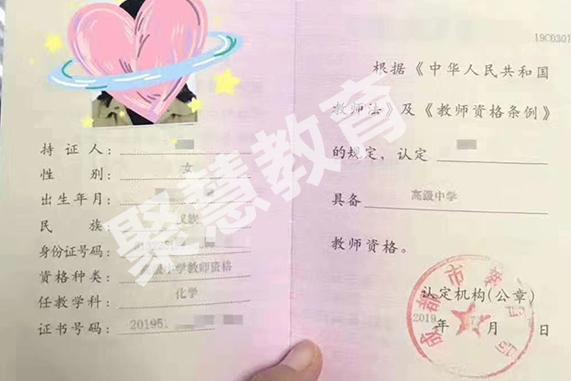 持证人:
性别: 女
出生年月:
民族 汉族
身份证号码:
资格种类: 高级中学教师资格
任教学科: 化学
证书号码: 20195
19C0301
根据《中华人民共和国
教师法》及《教师资格条例》
的规定,认定
具备 高级中学
教师资格。
认定机构(公章)
2019 年 月 日
成都市教育局
聚慧教育